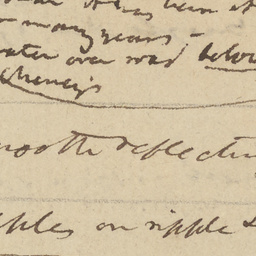 has been it
many years -
water over road below
Cheney's
smooth reflecting
ripples on ripple &